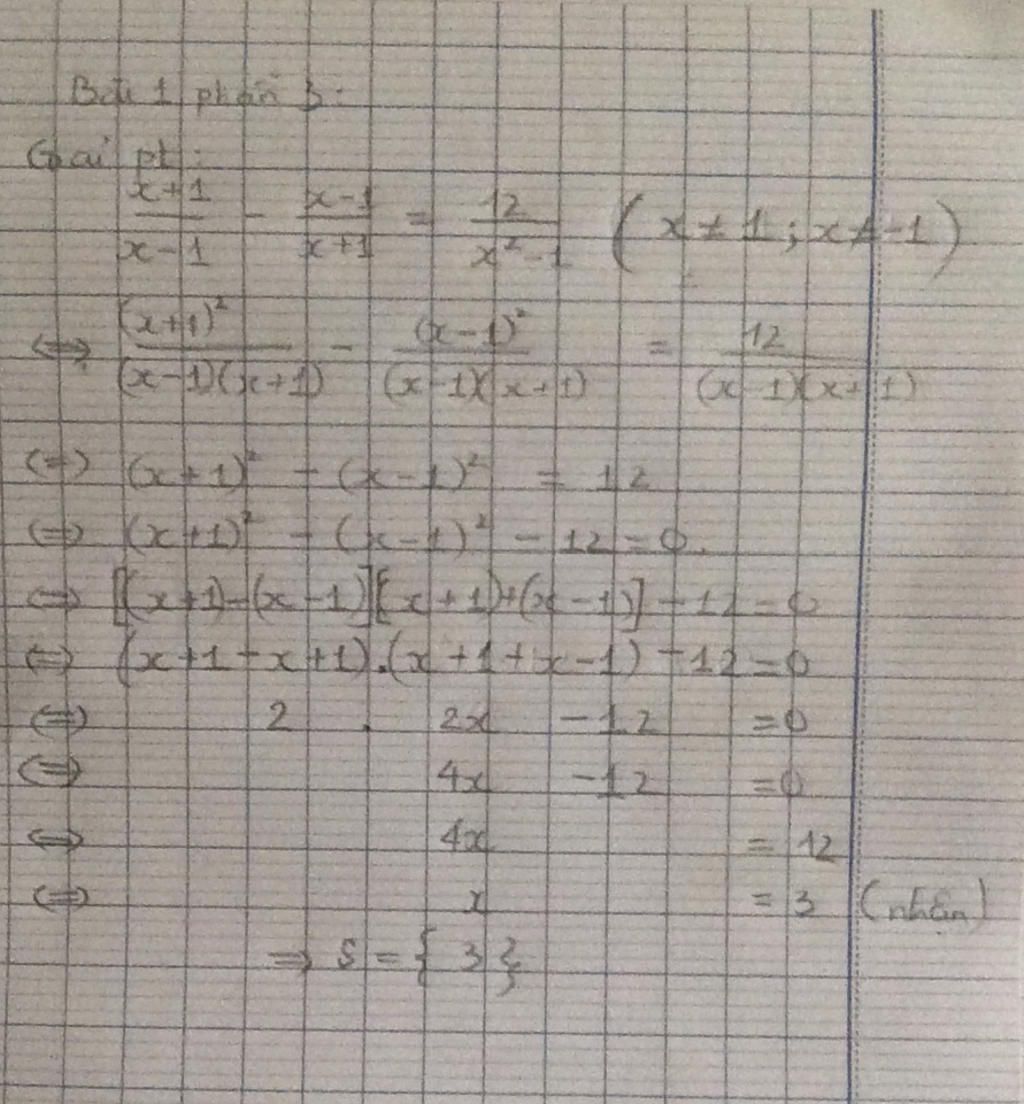 Bài 1 phần 3:
Giải pt:
(x+1)/(x-1) - (x-1)/(x+1) = 12/(x²-1) ( x ≠ 1 ; x ≠ -1 )
<=> (x+1)²/((x-1)(x+1)) - (x-1)²/((x-1)(x+1)) = 12/((x-1)(x+1))
<=> (x+1)² - (x-1)² = 12
<=> (x+1)² - (x-1)² - 12 = 0.
<=> [(x+1)-(x-1)][x+1)+(x-1)] - 12 = 0
<=> (x+1-x+1).(x+1+x-1) - 12 = 0
<=> 2 . 2x - 12 = 0
<=> 4x - 12 = 0
<=> 4x = 12
<=> x = 3 (nhận)
=> S = { 3 }